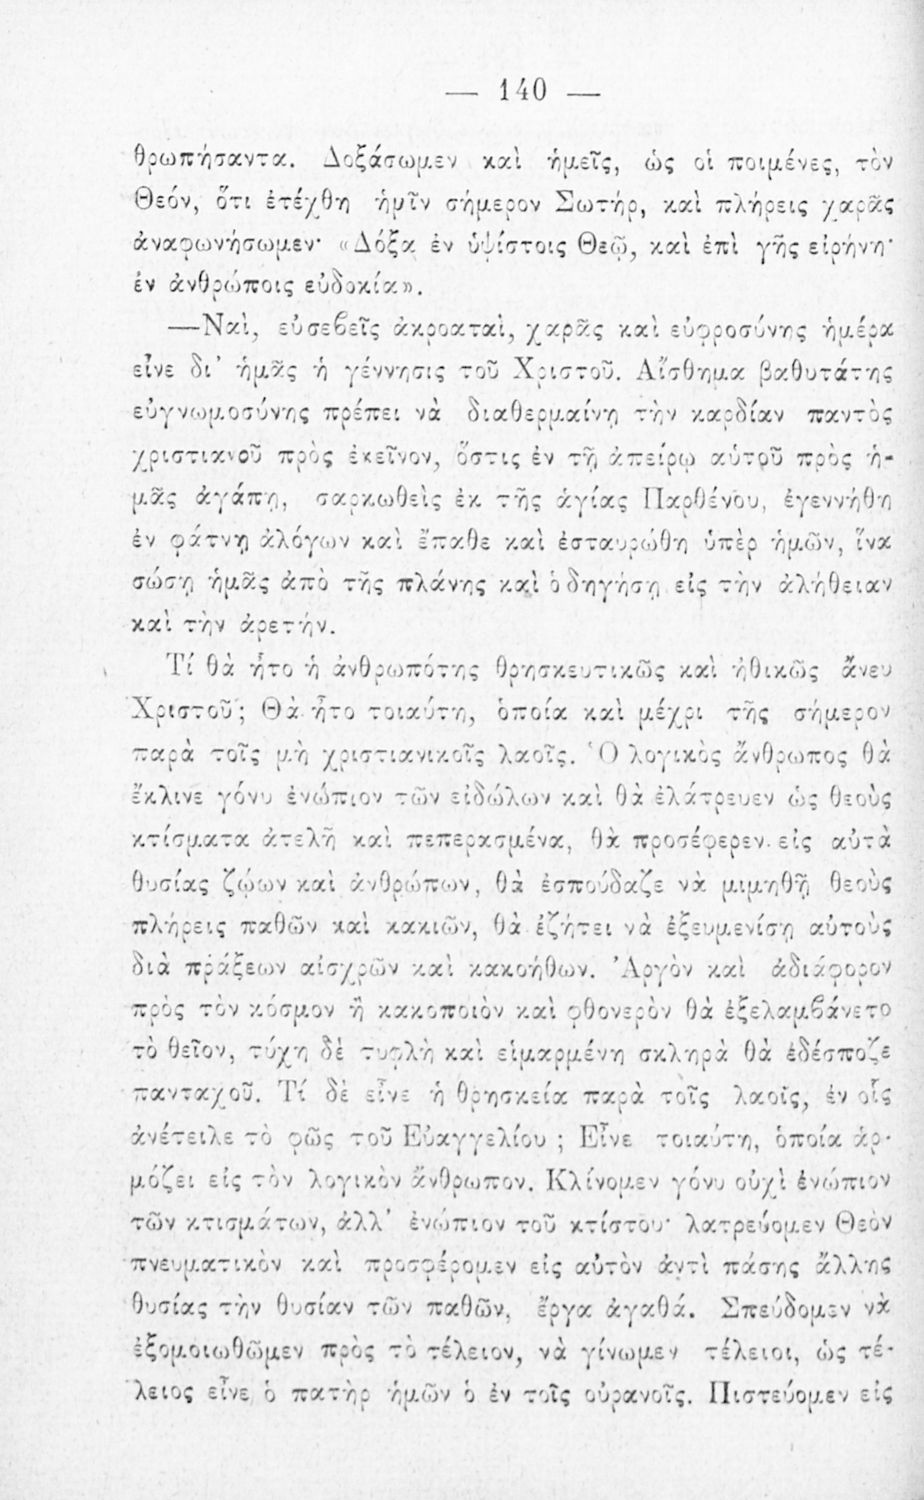 — 140 —
θρωπήσαντα. Δοξάσωμεν καὶ ἡμεῖς, ὡς οἱ ποιμένες, τὸν
Θεόν, ὅτι ἐτέχθη ἡμῖν σήμερον Σωτήρ, καὶ πλήρεις χαρᾶς
ἀναφωνήσωμεν· «Δόξα ἐν ὑψίστοις Θεῷ, καὶ ἐπὶ γῆς εἰρήνη·
ἐν ἀνθρώποις εὐδοκία».
—Ναὶ, εὐσεβεῖς ἀκροαταὶ, χαρᾶς καὶ εὐφροσύνης ἡμέρα
εἶνε δι᾿ ἡμᾶς ἡ γέννησις τοῦ Χριστοῦ. Αἴσθημα βαθυτάτης
εὐγνωμοσύνης πρέπει νὰ διαθερμαίνῃ τὴν καρδίαν παντὸς
χριστιανοῦ πρὸς ἐκεῖνον, ὅστις ἐν τῇ ἀπείρῳ αὑτοῦ πρὸς ἡ-
μᾶς ἀγάπῃ, σαρκωθεὶς ἐκ τῆς ἁγίας Παρθένου, ἐγεννήθη
ἐν φάτνῃ ἀλόγων καὶ ἔπαθε καὶ ἐσταυρώθη ὑπὲρ ἡμῶν, ἵνα
σώσῃ ἡμᾶς ἀπὸ τῆς πλάνης καὶ ὁδηγήσῃ εἰς τὴν ἀλήθειαν
καὶ τὴν ἀρετήν.
Τί θὰ ἦτο ἡ ἀνθρωπότης θρησκευτικῶς καὶ ἠθικῶς ἄνευ
Χριστοῦ; Θὰ ἦτο τοιαύτη, ὁποία καὶ μέχρι τῆς σήμερον
παρὰ τοῖς μὴ χριστιανικοῖς λαοῖς. Ὁ λογικὸς ἄνθρωπος θὰ
ἔκλινε γόνυ ἐνώπιον τῶν εἰδώλων καὶ θὰ ἐλάτρευεν ὡς θεοὺς
κτίσματα ἀτελῆ καὶ πεπερασμένα, θὰ προσέφερεν εἰς αὐτὰ
θυσίας ζῴων καὶ ἀνθρώπων, θὰ ἐσπούδαζε νὰ μιμηθῇ θεοὺς
πλήρεις παθῶν καὶ κακιῶν, θὰ ἐζήτει νὰ ἐξευμενίσῃ αὐτοὺς
διὰ πράξεων αἰσχρῶν καὶ κακοήθων. Ἀργὸν καὶ ἀδιάφορον
πρὸς τὸν κόσμον ἢ κακοποιὸν καὶ φθονερὸν θὰ ἐξελαμβάνετο
τὸ θεῖον, τύχη δὲ τυφλὴ καὶ εἱμαρμένη σκληρὰ θὰ ἐδέσποζε
πανταχοῦ. Τί δὲ εἶνε ἡ θρησκεία παρὰ τοῖς λαοῖς, ἐν οἷς
ἀνέτειλε τὸ φῶς τοῦ Εὐαγγελίου ; Εἶνε τοιαύτη, ὁποία ἁρ-
μόζει εἰς τὸν λογικὸν ἄνθρωπον. Κλίνομεν γόνυ οὐχὶ ἐνώπιον
τῶν κτισμάτων, ἀλλ᾿ ἐνώπιον τοῦ κτίστου· λατρεύομεν Θεὸν
πνευματικὸν καὶ προσφέρομεν εἰς αὐτὸν ἀντὶ πάσης ἄλλης
θυσίας τὴν θυσίαν τῶν παθῶν, ἔργα ἀγαθά. Σπεύδομεν νὰ
ἐξομοιωθῶμεν πρὸς τὸ τέλειον, νὰ γίνωμεν τέλειοι, ὡς τέ-
λειος εἶνε ὁ πατὴρ ἡμῶν ὁ ἐν τοῖς οὐρανοῖς. Πιστεύομεν εἰς